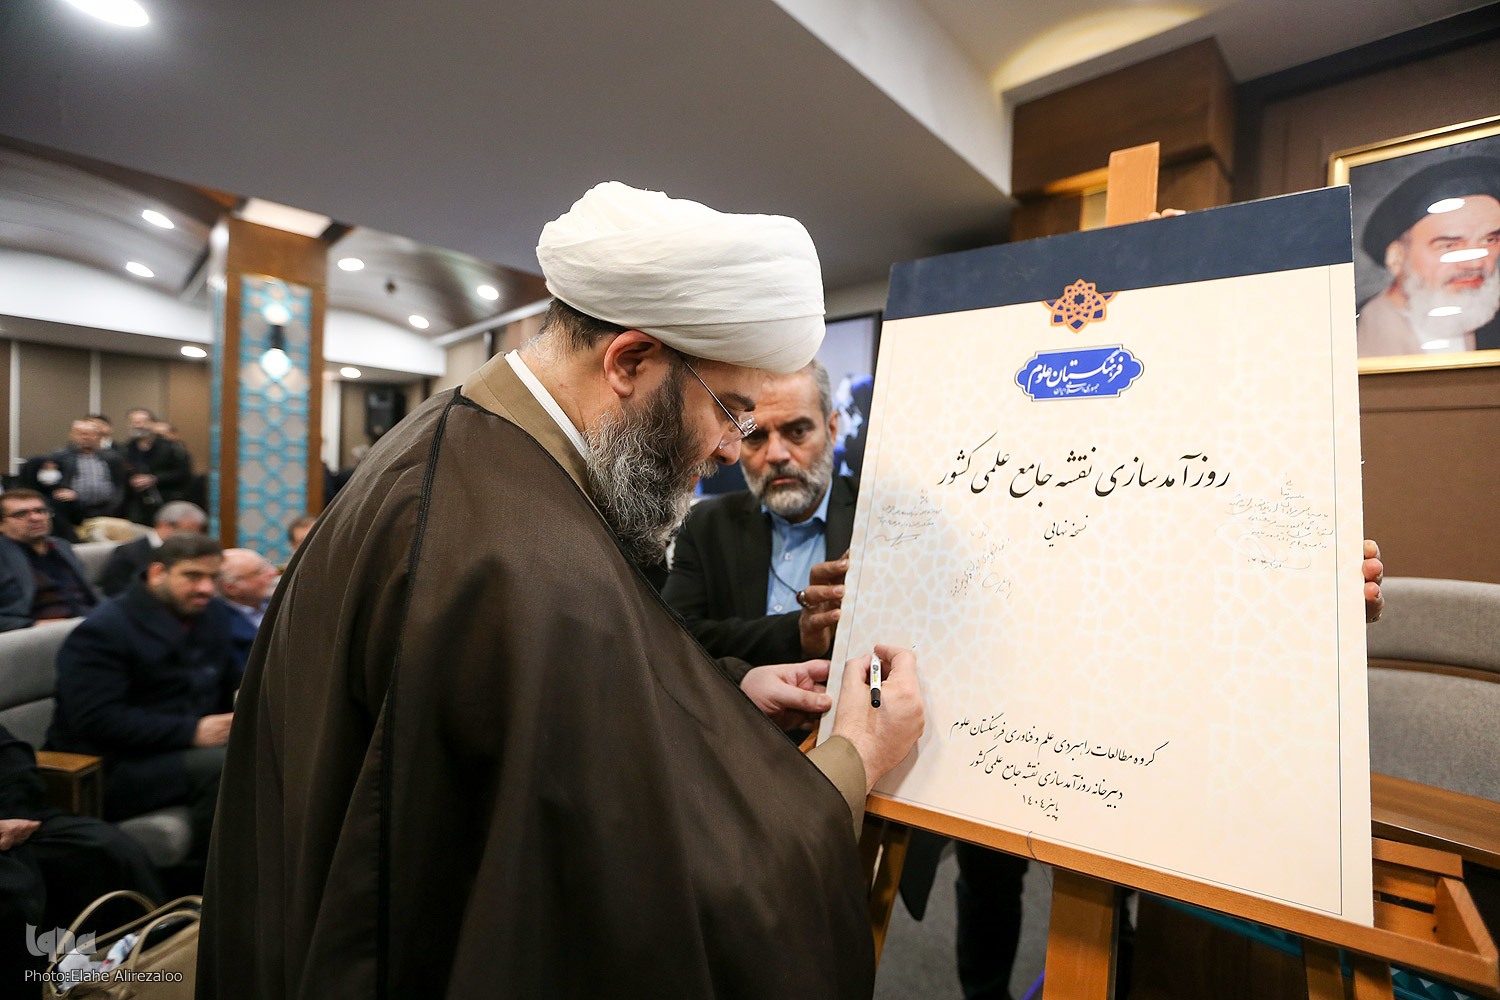 فرهنگستان علوم
جمهوری اسلامی ایران
روزآمدسازی نقشه جامع علمی کشور
نسخه نهایی
گروه مطالعات راهبردی علم و فناوری فرهنگستان علوم
دبیرخانه روزآمدسازی نقشه جامع علمی کشور
پاییز ۱۴۰۴
iqna
Photo:Elahe Alirezaloo